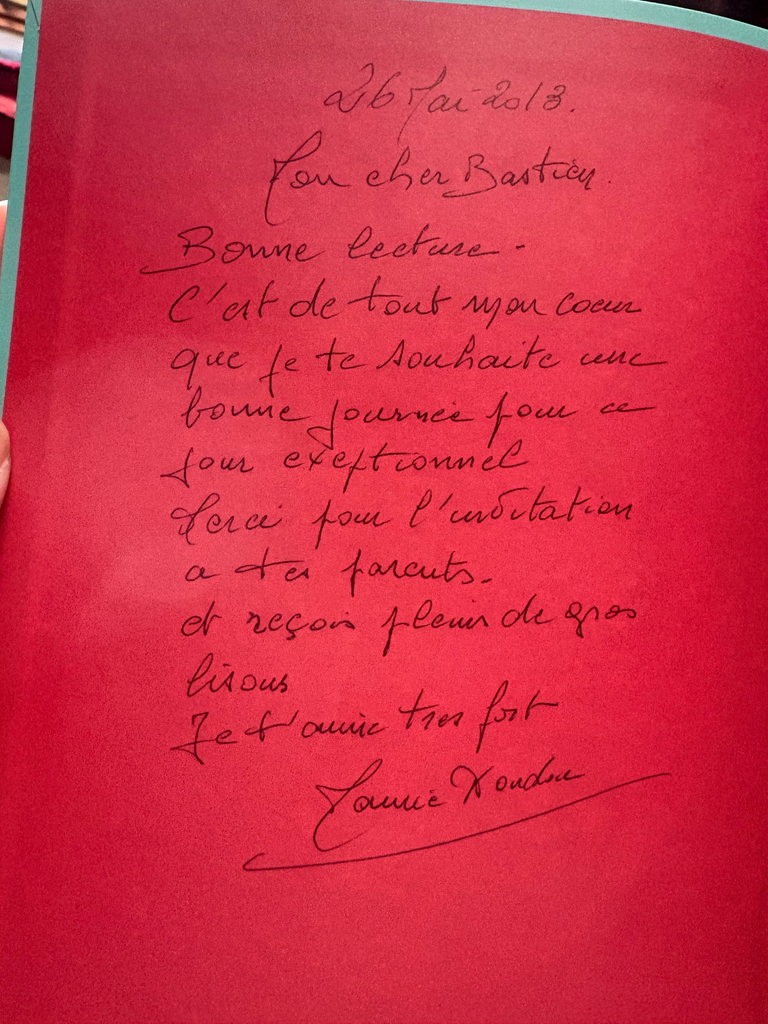 26 Mai 2013.
Mon cher Bastien.
Bonne lecture -
C'est de tout mon coeur
que je te souhaite une
bonne journée pour ce
jour exeptionnel
Merci pour l'invitation
a tes parents.
et reçois plein de gros
bisous
Je t'aime tres fort
Mamie